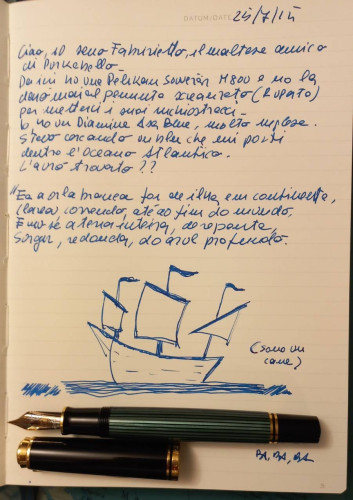 DATUM/DATE 25/7/15
Ciao, io sono Fabrizietto, il maltese amico
di Purkebello.
Da ieri ho una Pelikan Souverän M800 e no la
darò mai al pennuto (Ruperto)
per metterci i suoi inchiostracci.
Io ho un Diamine Asa Blue, molto inglese.
Stavo cercando un blu che mi porti
dentro l'Oceano Atlantico.
L'avrò trovato??
"E a orla branca foi de ilha em continente,
Clareou, correndo, até ao fim do mundo,
E viu-se a terra inteira, de repente,
Surgir, redonda, do azul profundo.
(sono un
cane)
BA, BA, BA